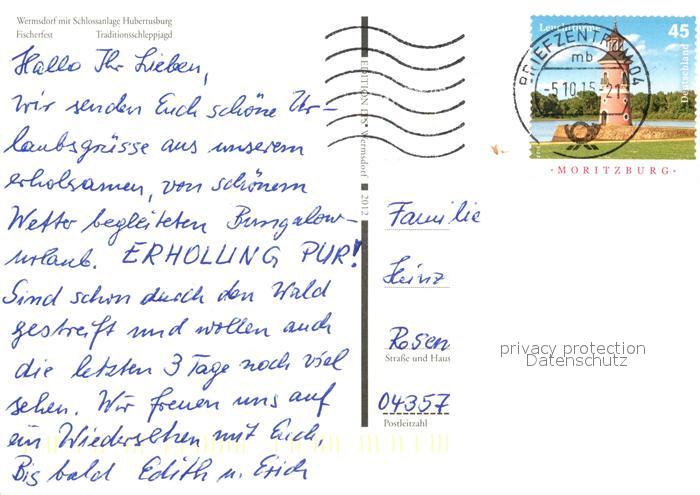 Wermsdorf mit Schlossanlage Hubertusburg
Fischerfest Traditionsschleppjagd
Hallo Ihr Lieben,
wir senden Euch schöne Ur-
laubsgrüsse aus unserem
erholsamen, von schönem
Wetter begleiteten Bungalow-
urlaub. ERHOLUNG PUR!
Sind schon durch den Wald
gestreift und wollen auch
die letzten 3 Tage noch viel
sehen. Wir freuen uns auf
ein Wiedersehen mit Euch,
Bis bald Edith u. Erich
Wermsdorf 2012
BRIEFZENTRUM 04
mb
-5.10.15-21
45
Deutschland
·MORITZBURG·
Familie
Heinz
Rosen
Straße und Haus
04357
Postleitzahl
privacy protection
Datenschutz